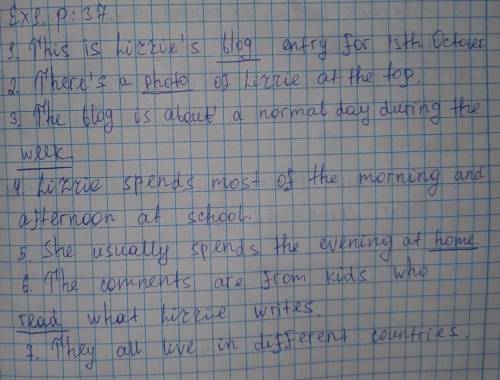 Ex1. p: 37.
1. This is Lizzie's blog entry for 13th October
2. There's a photo of Lizzie at the top.
3. The blog is about a normal day during the
week.
4. Lizzie spends most of the morning and
afternoon at school.
5. She usually spends the evening at home.
6. The comments are from kids who
read what Lizzie writes.
7. They all live in different countries.